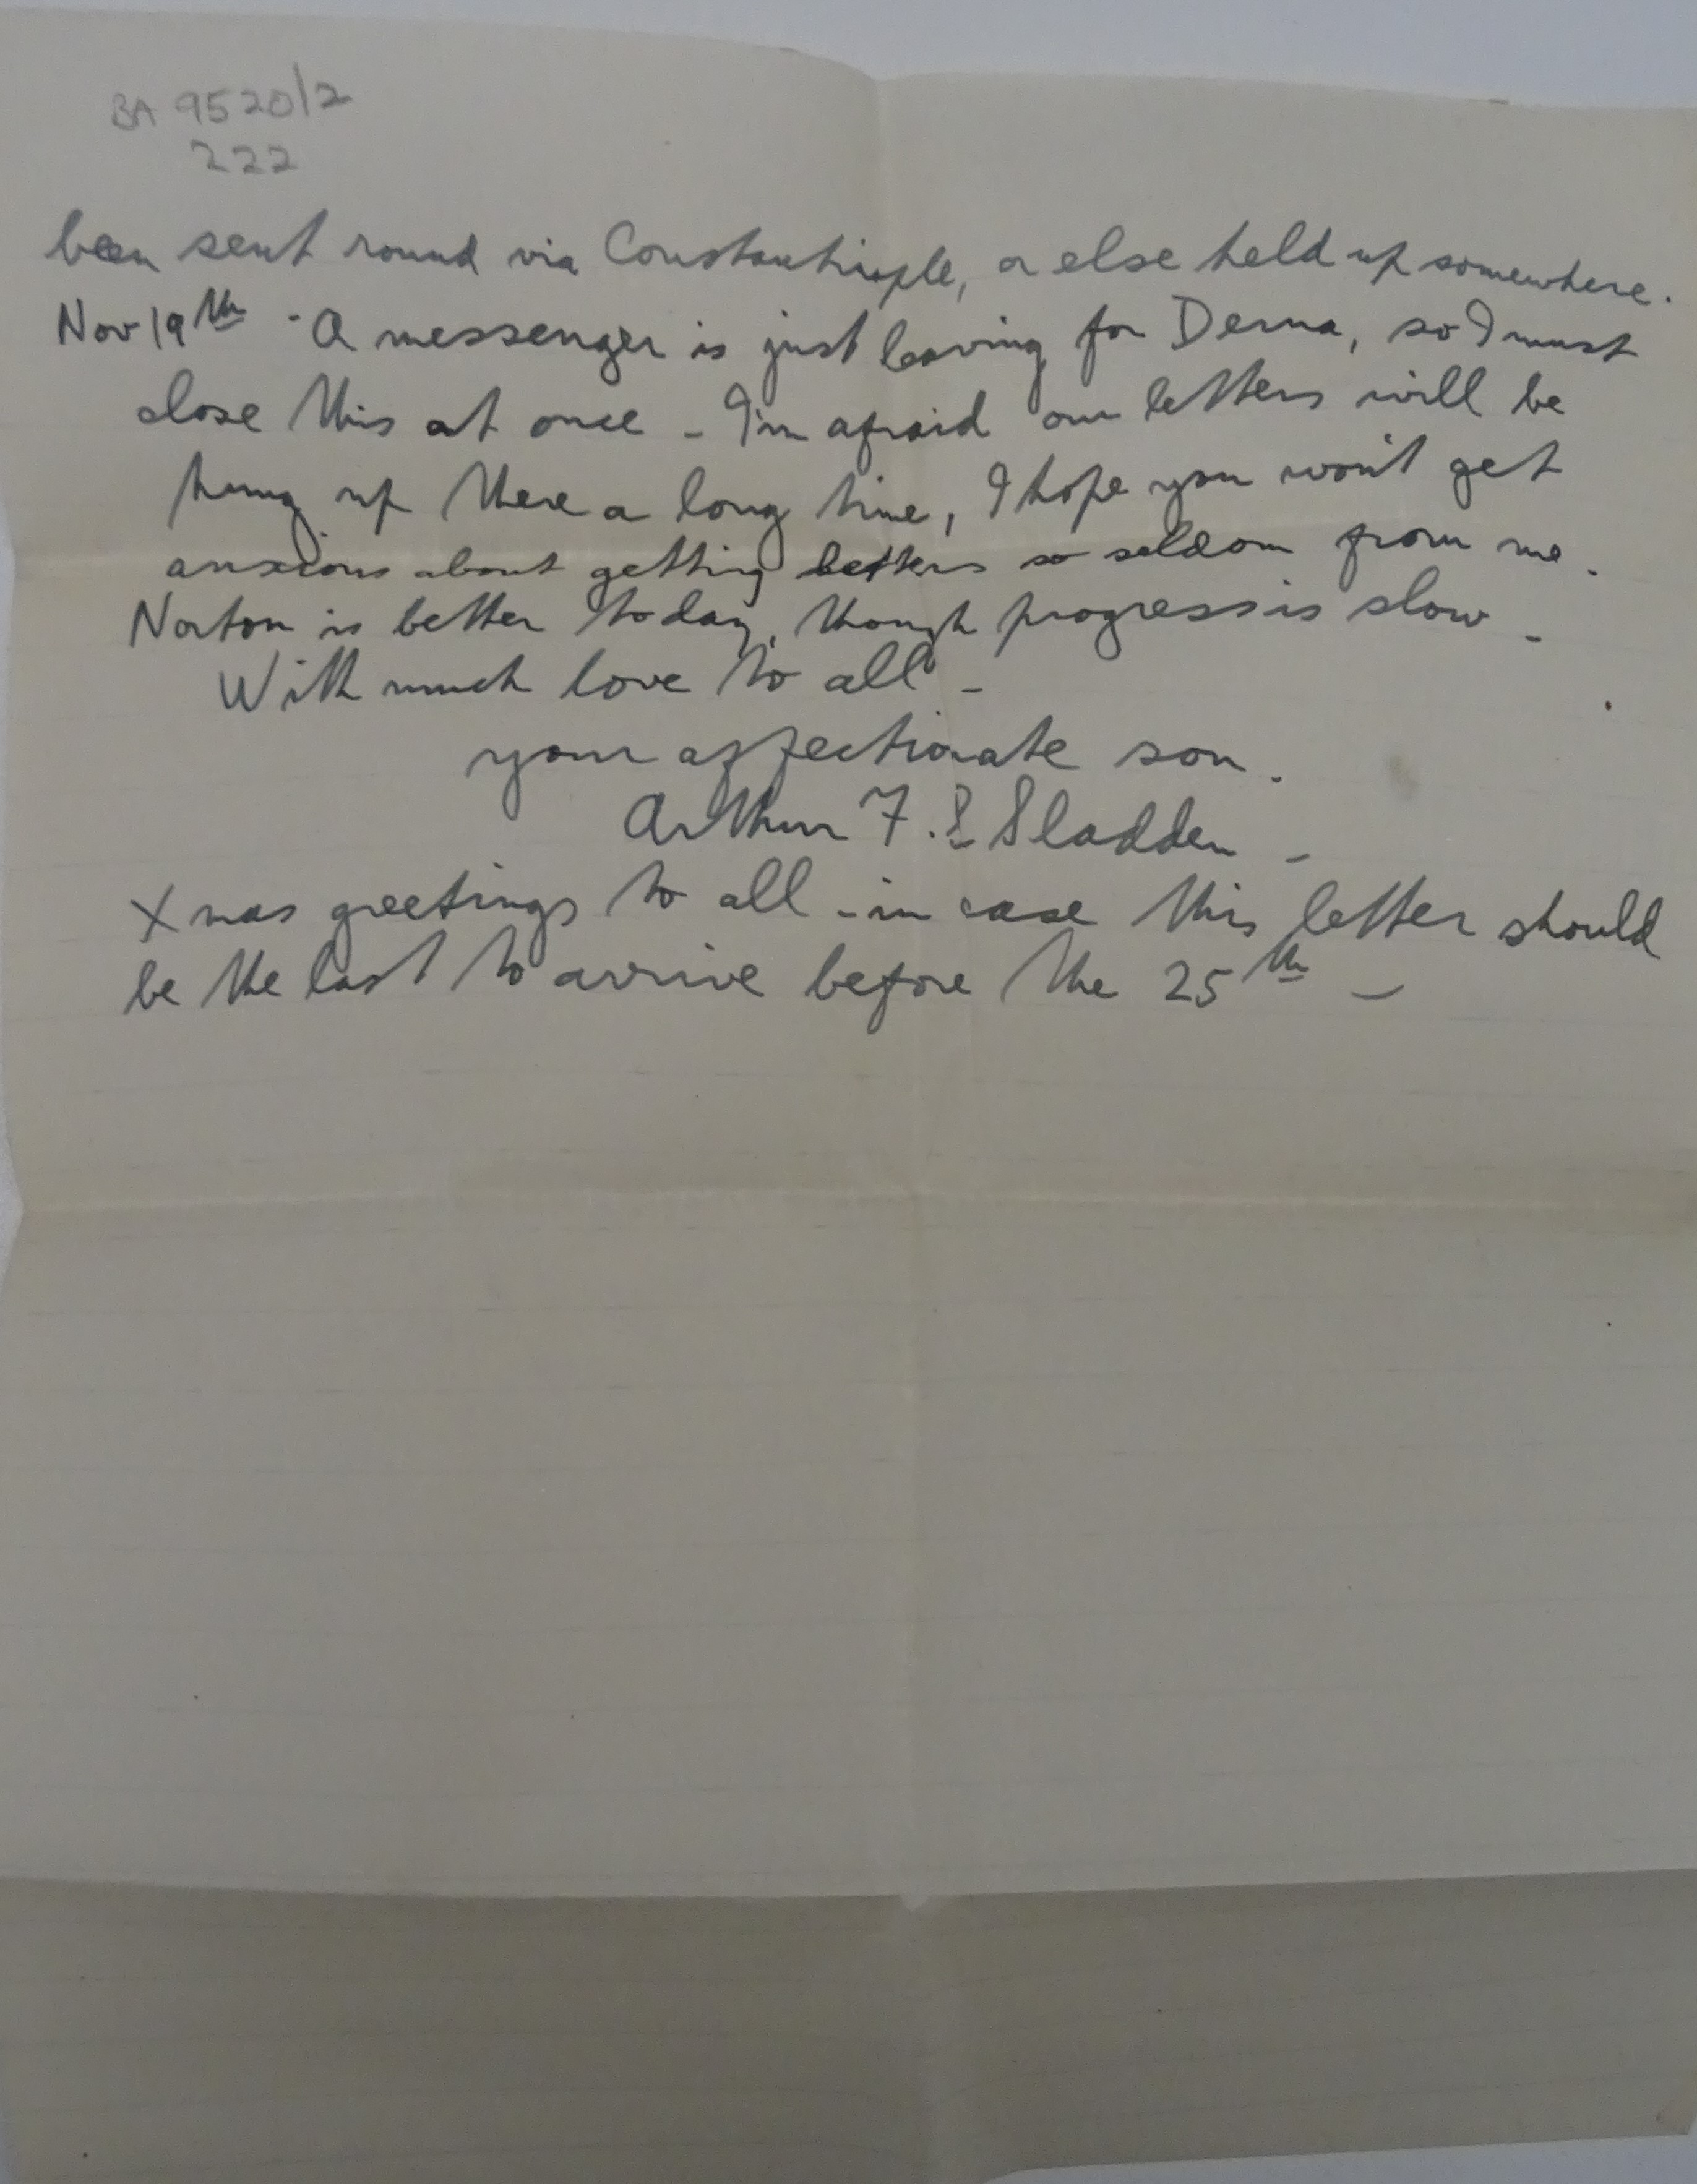 BA 9520/2
222
been sent round via Constantinople, or else held up somewhere.
Nov 19th - A messenger is just leaving for Derna, so I must
close this at once - I'm afraid our letters will be
hung up there a long time, I hope you won't get
anxious about getting letters so seldom from me.
Norton is better today, though progress is slow -
With much love to all -
your affectionate son.
Arthur F. S Sladden -
Xmas greetings to all - in case this letter should
be the last to arrive before the 25th -